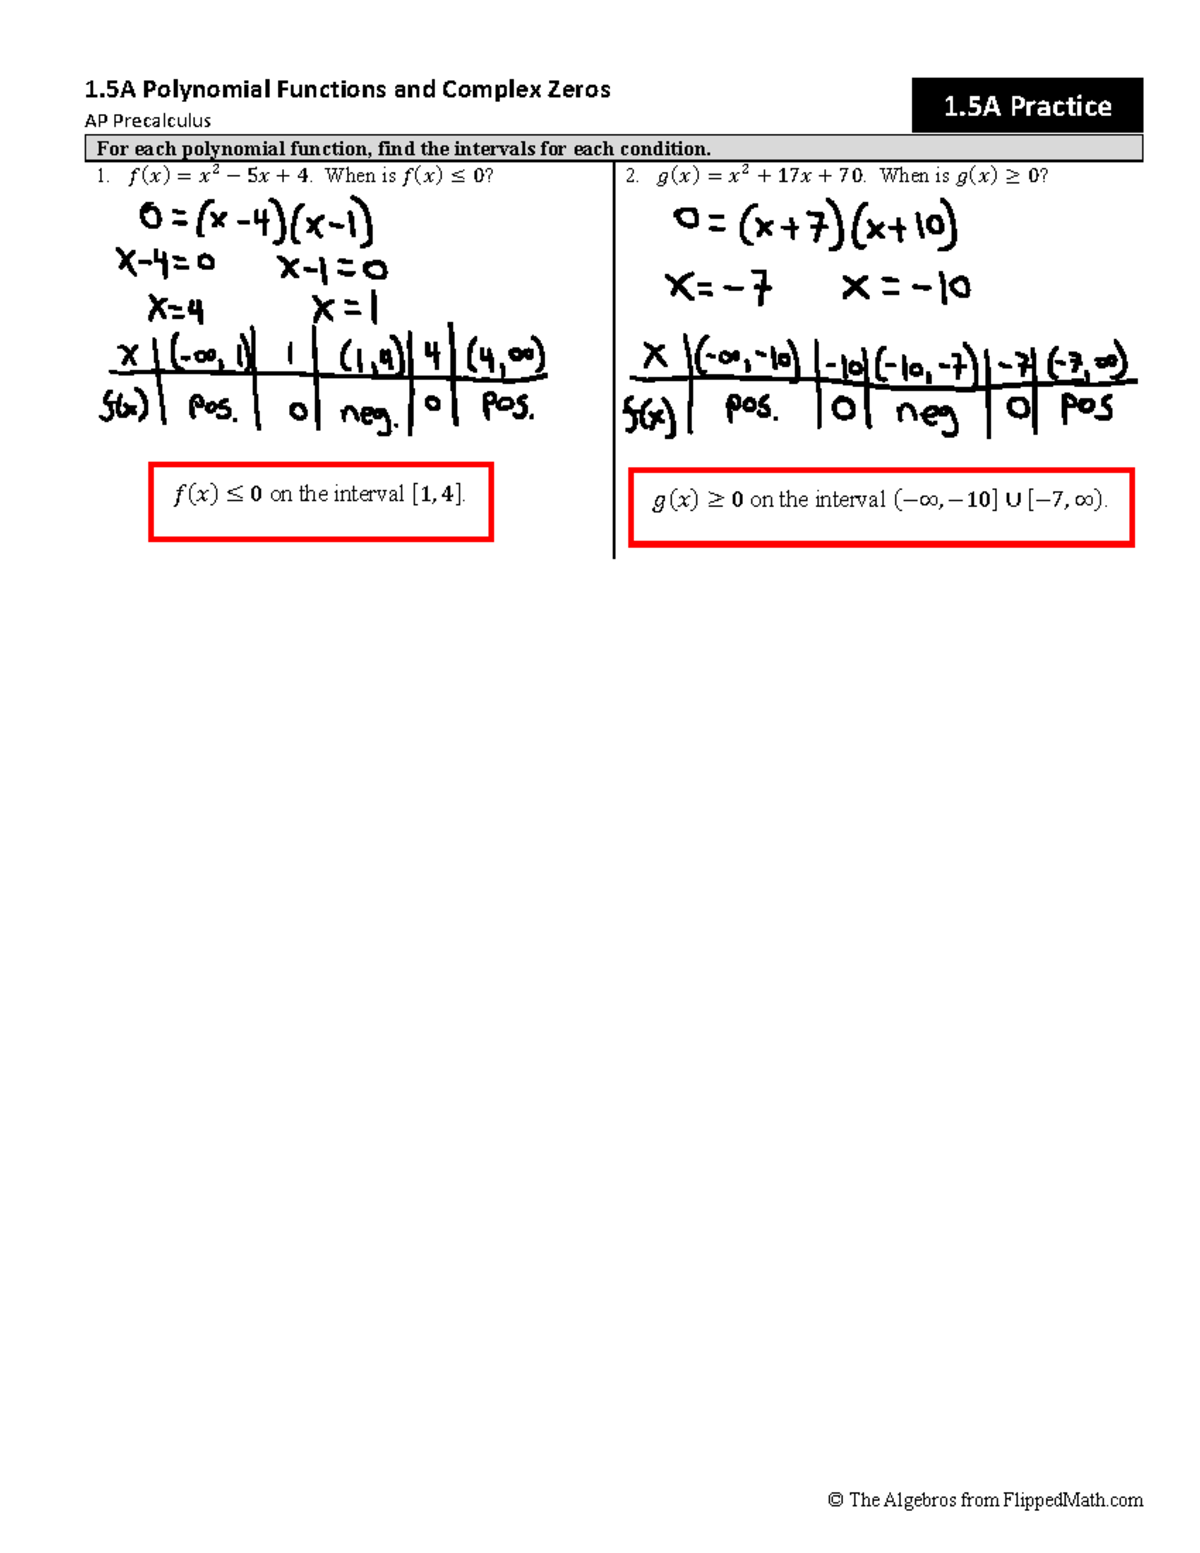 1.5A Polynomial Functions and Complex Zeros
AP Precalculus
1.5A Practice
For each polynomial function, find the intervals for each condition.
1. f(x) = x² − 5x + 4. When is f(x) ≤ 0?
0 = (x − 4)(x − 1)
x − 4 = 0 x − 1 = 0
x = 4 x = 1
x | (−∞, 1) | 1 | (1, 4) | 4 | (4, ∞)
f(x) | pos. | 0 | neg. | 0 | pos.
f(x) ≤ 0 on the interval [1, 4].
2. g(x) = x² + 17x + 70. When is g(x) ≥ 0?
0 = (x + 7)(x + 10)
x = −7 x = −10
x | (−∞, −10) | −10 | (−10, −7) | −7 | (−7, ∞)
f(x) | pos. | 0 | neg | 0 | pos
g(x) ≥ 0 on the interval (−∞, −10] ∪ [−7, ∞).
© The Algebros from FlippedMath.com